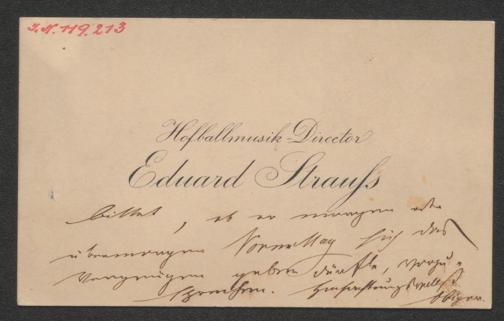 I.N. 119.213
Hofballmusik-Director
Eduard Strauß
bittet, ob er morgen oder
übermorgen Vormittag sich das
Vergnügen geben dürfte, vorzu-
sprechen. Hochachtungsvollst
Obiger.